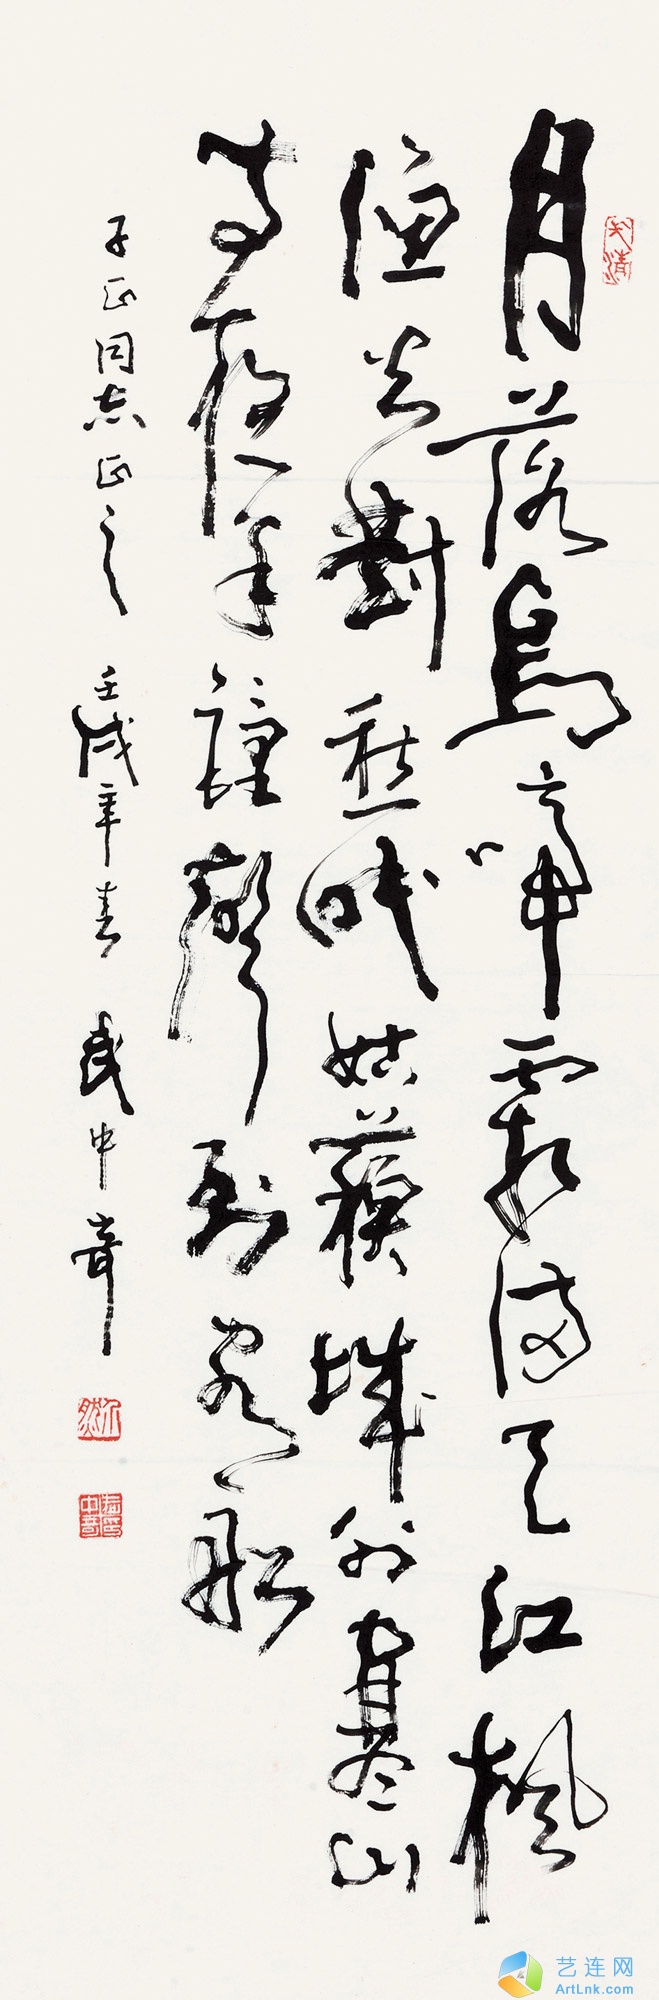 月落烏啼霜滿天红楓
漁火對愁眠姑蘇城外寒山
寺夜半鐘聲到客船
子正同志正之 壬戌年春 武中奇
艺连网
ArtLnk.com